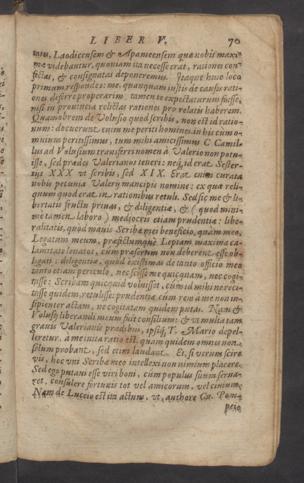 LIBER V. 70
mus, Laodicensem & Apameensem quæ nobis maxi-
me videbantur, quoniam ita necesse erat, rationes con-
fectas, & consignatas deponeremus. Itaque huic loco
primum respondeo: me, quanquam iustis de causis ratio-
nes deferre properarim tamen te expectaturum fuisse,
nisi in prouincia relictas rationes pro relatis haberem.
Quamobrem de Volusio quod scribis, non est id ratio-
num: docuerunt enim me periti homines in his cum o-
mnium peritissimus, tum mihi amicissimus C. Camil-
lus: ad Volusium transferri nomen a Valerio non potu-
isse, sed prædes Valerianos teneri: neq; id erat Sester-
tiûm XXX vt scribis, sed XIX. Erat enim curata
nobis pecunia Valerij mancipis nomine: ex qua reli-
quum quod erat, in rationibus retuli. Sed sic me & li-
beritatis fructu priuas, & diligentiæ, & (quod mini-
me tamen laboro) mediocris etiam prudentiæ: libe-
ralitatis, quod mauis Scribæ mei beneficio, quàm meo,
Legatum meum, præfectumque Leptam maxima ca-
lamitate leuatos, cum præsertim non deberent esse ob-
ligati: diligentiæ, quod existimas de tanto officio meo
tanto etiam periculo, nec scisse me quicquam, nec cogita-
uisse: Scribam quicquid voluisset, cum id mihi ne reci-
tasse quidem, retulisse: prudentiæ, cum rem a me non in-
sipienter actam, ne cogitatam quidem putas. Nam &
Volusij liberandi meum fuit consilium: & vt multa tam
grauis Valerianis prædibus, ipsiq; T. Mario depel-
leretur, a me inita ratio est: quam quidem omnes non
solum probant, sed etiam laudant. Et, si verum scire
vis, hoc vni Scribæ meo intellexi non nimium placere.
Sed ego putaui esse viri boni, cum populus suum serua-
ret, consulere fortunis tot vel amicorum, vel ciuium.
Nam de Lucceio est ita actum, vt, authore Cn. Pom-
peio